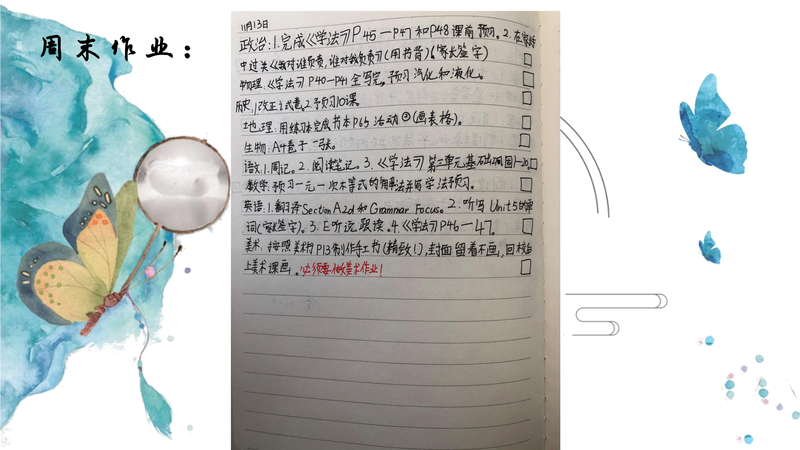 周末作业：
11月13日
政治：1.完成《学法》P45—P47和P48课前预习。2.在家长
中过关《我对谁负责，谁对我负责》(用书背)(家长签字)
物理：《学法》P40—P41全写完。预习汽化和液化。
历史：1.改正试卷。2.预习10课
地理：用练习本完成书本P65活动④(画表格)。
生物：A4卷子一张。
语文：1.周记。2.阅读笔记。3.《学法》第二单元基础巩固1-20。
数学：预习一元一次不等式的解法并写学法预习。
英语：1.翻译Section A 2d和Grammar Focus。2.听写Unit5的单
词(家长签字)。3.E听说跟读。4.《学法》P46—47。
美术：按照美术书P13制作手工书(精致！)，封面留着不画，回校
上美术课画。必须要做美术作业！